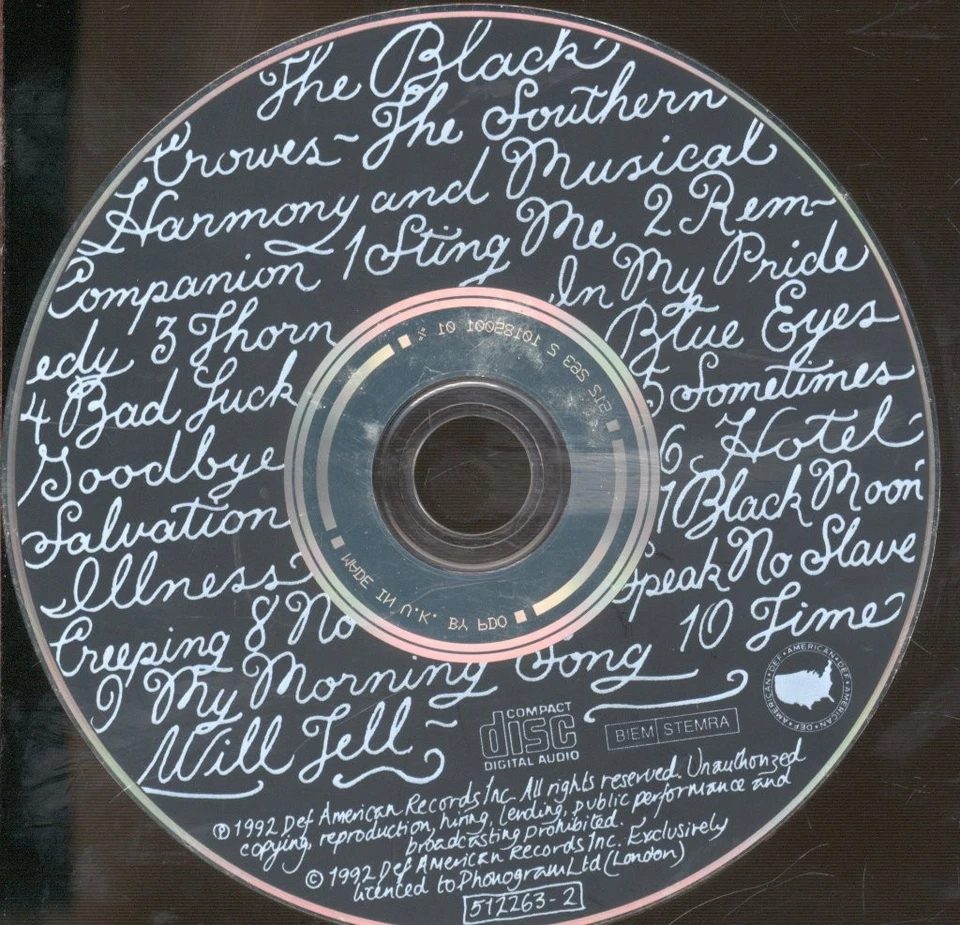 The Black
Crowes~The Southern
Harmony and Musical
Companion 1 Sting Me 2 Rem~
edy 3 Thorn In My Pride
4 Bad Luck Blue Eyes
Goodbye 5 Sometimes
Salvation 6 Hotel
Illness 7 Black Moon
Creeping 8 No Speak No Slave
9 My Morning Song 10 Time
Will Tell~
COMPACT
disc
DIGITAL AUDIO
BIEM STEMRA
AMERICAN • DEF • AMERICAN • DEF • AMERICAN • DEF •
℗ 1992 Def American Records Inc. All rights reserved. Unauthorized
copying, reproduction, hiring, lending, public performance and
broadcasting prohibited.
© 1992 Def American Records Inc. Exclusively
licenced to Phonogram Ltd (London)
512263-2
512 263 2 10185001 01 %
MADE IN U.K. BY PDO